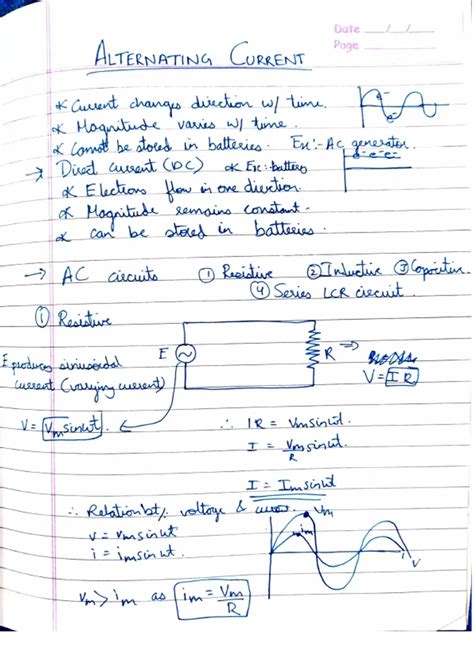 Date __/__/__
Page ____
ALTERNATING CURRENT
* Current changes direction w/ time.
* Magnitude varies w/ time.
* Cannot be stored in batteries. Ex:- AC generator.
e- e- e-
→ Direct current (DC) * Ex: battery
* Electrons flow in one direction.
* Magnitude remains constant.
* can be stored in batteries.
→ AC circuits ① Resistive ② Inductive ③ Capacitive
④ Series LCR circuit.
① Resistive
E R ⇒
E produces sinusoidal
current (varying current)
V = IR
V = Vm sin ωt.
∴ IR = Vm sin ωt.
I = Vm sin ωt.
R
I = Im sin ωt
∴ Relation bt/. voltage & current.
Vm
im
v = vm sin ωt
i = im sin ωt.
i
V
vm > im as im = Vm
R